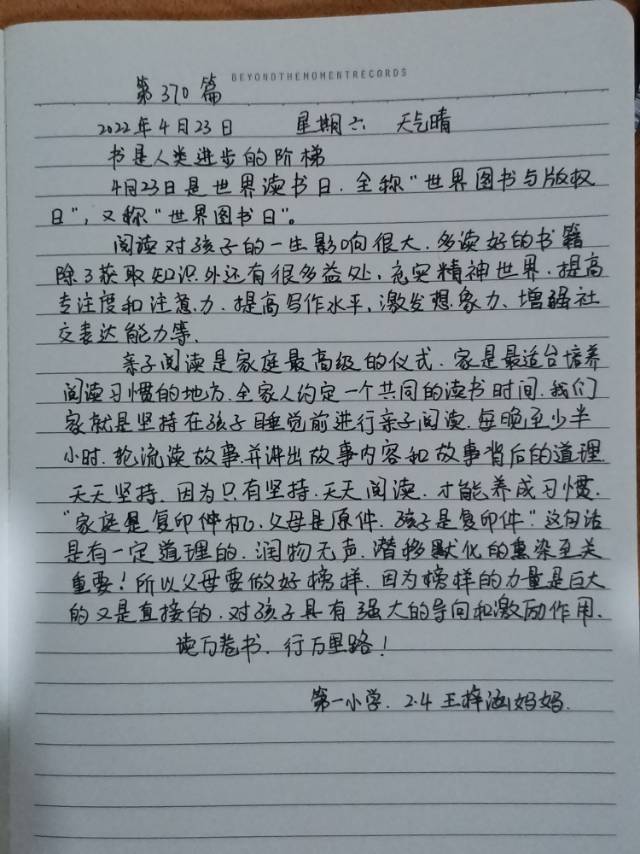 BEYONDTHEMOMENTRECORDS
第370篇
2022年4月23日 星期六 天气晴
书是人类进步的阶梯
4月23日是世界读书日.全称“世界图书与版权
日”,又称“世界图书日”。
阅读对孩子的一生影响很大.多读好的书籍
除了获取知识外还有很多益处,充实精神世界.提高
专注度和注意力.提高写作水平,激发想象力、增强社
交表达能力等.
亲子阅读是家庭最高级的仪式.家是最适合培养
阅读习惯的地方.全家人约定一个共同的读书时间.我们
家就是坚持在孩子睡觉前进行亲子阅读.每晚至少半
小时.轮流读故事.并讲出故事内容和故事背后的道理
天天坚持.因为只有坚持.天天阅读.才能养成习惯.
“家庭是复印件机.父母是原件.孩子是复印件”这句话
是有一定道理的.润物无声.潜移默化的熏染至关
重要!所以父母要做好榜样.因为榜样的力量是巨大
的又是直接的.对孩子具有强大的导向和激励作用.
读万卷书.行万里路!
第一小学.2.4王梓涵妈妈.